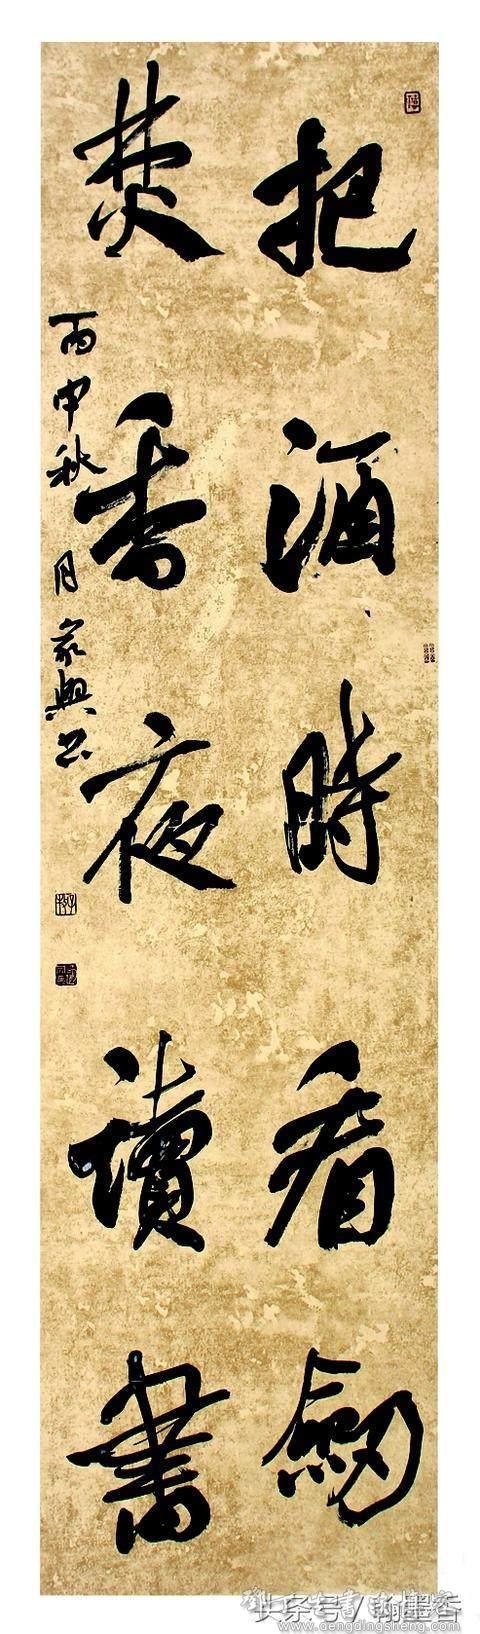 把酒時看劔
焚香夜讀書
丙申秋月家興书
头条号/翰墨香
www.dengdingsheng.com